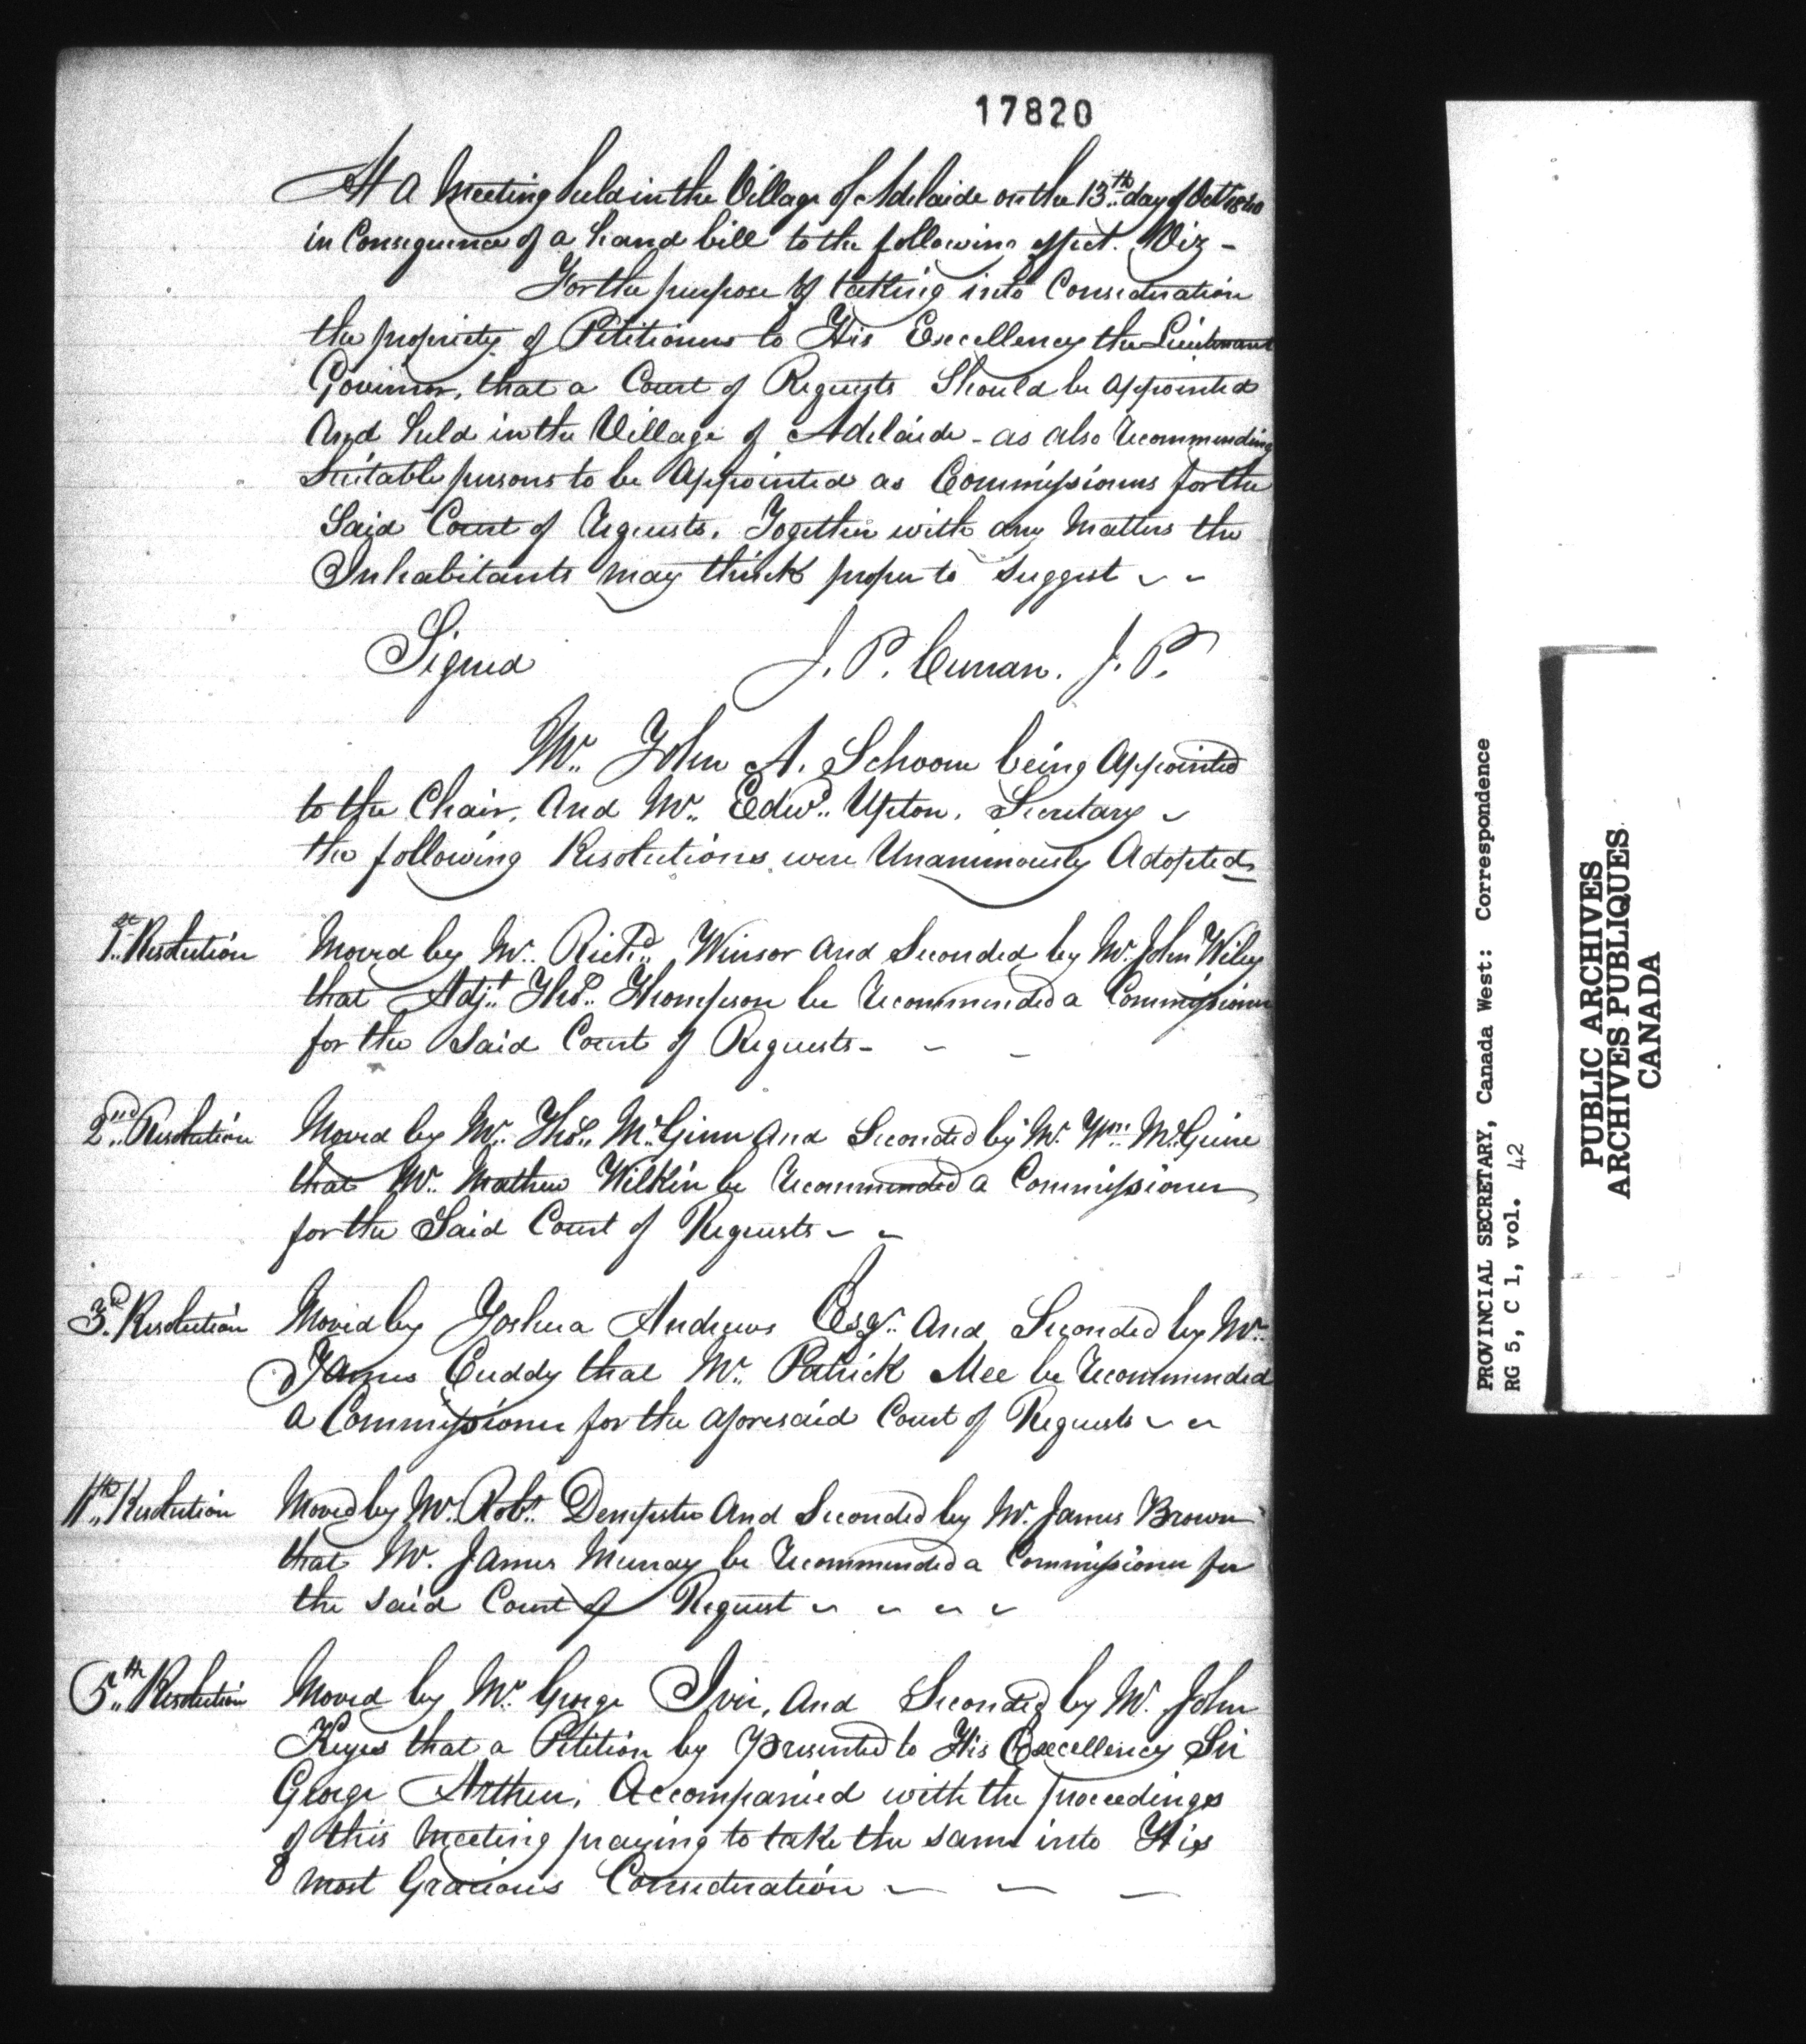 17820
At a Meeting held in the Village of Adelaide on the 13th day of Oct 1840
in Consequence of a hand bill to the following effect. Viz -
For the purpose of takking into Consideration
the propriety of Petitions to His Excellency the Lieutenant
Govinor, that a Court of Requests Should be appointed
And held in the Village of Adelaide - as also recommending
Suitable persons to be Appointed as Commissioners for the
Said Court of requests. Together with any Matters the
Inhabitants may think proper to Suggest
Signed J. P. Curran. J. P.
Mr. John A. Schoom being Appointed
to the Chair, And Mr. Edwd. Upton, Secretary
the following Resolutions were Unanimously Adopted
1st Resolution Moved by Mr. Richd. Winsor and Seconded by Mr. John Wiley
that Adjt. Thos. Thompson be recommended a Commissioner
for the Said Court of Requests -
2nd Resolution Moved by Mr. Thos. McGinn and Seconded by Mr. Wm. McGuire
that Mr. Mathew Wilkin be recommended a Commissioner
for the Said Court of Requests
3d. Resolution Moved by Joshua Andrews Esqr. And Seconded by Mr.
James Cuddy that Mr. Patrick Mee be recommended
a Commissioner for the aforesaid Court of Requests
4th Resolution Moved by Mr. Robt. Dempster And Seconded by Mr. James Brown
that Mr. James Murray be recommended a Commissioner for
the said Court of Request
5th Resolution Moved by Mr. George Ivir, and Seconded by Mr. John
Keyes that a Petition by Presented to His Excellency Sir
George Arthur, Accompanied with the proceedings
of this Meeting praying to take the same into His
most Gracious Consideration
PROVINCIAL SECRETARY, Canada West: Correspondence
RG 5, C 1, vol. 42
PUBLIC ARCHIVES
ARCHIVES PUBLIQUES
CANADA